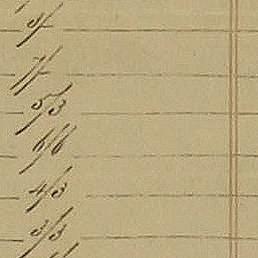 8/
7/
5/3
6/6
4/3
3/3